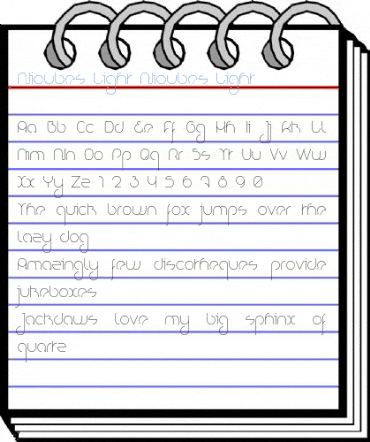 Light Light
Aa Bb Cc Dd Ee Ff Gg Hh Ii Jj Kk Ll
Mm Nn Oo Pp Qq Rr Ss Tt Uu Vv Ww
Xx Yy Zz 1 2 3 4 5 6 7 8 9 0
The quick brown fox jumps over the
lazy dog
Amazingly few discotheques provide
jukeboxes
Jackdaws love my big sphinx of
quartz